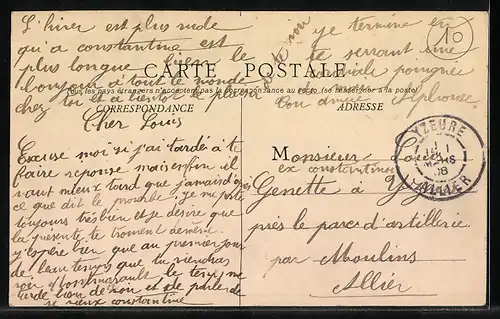 L'hiver est plus rude
qu'a constantine est
plus longue bien le
bonjour à tout le monde
chez toi et à bientôt le plaisir
je termine en
te serrant une
cordiale poignée
Ton ami Alphonse
10
CARTE POSTALE
Tous les pays étrangers n'acceptent pas la correspondance au recto (se renseigner à la poste)
CORRESPONDANCE
ADRESSE
Cher Louis
Excuse moi si j'ai tardé à te
faire réponse mais enfin il
vaut mieux tard que jamais d'après
ce que dit le proverbe je me porte
toujours très bien et je désire que
la présente te trouvent de même.
j'espère bien que au premier jour
de beau temps que tu viendras
voir le temps me
tarde bien de voir et de parler de
ce vieux constantine
Monsieur Louis
ex constantinois
Genette à Yzeure
près le parc d'artillerie
par Moulins
Allier
YZEURE
MARS
08
ALLIER